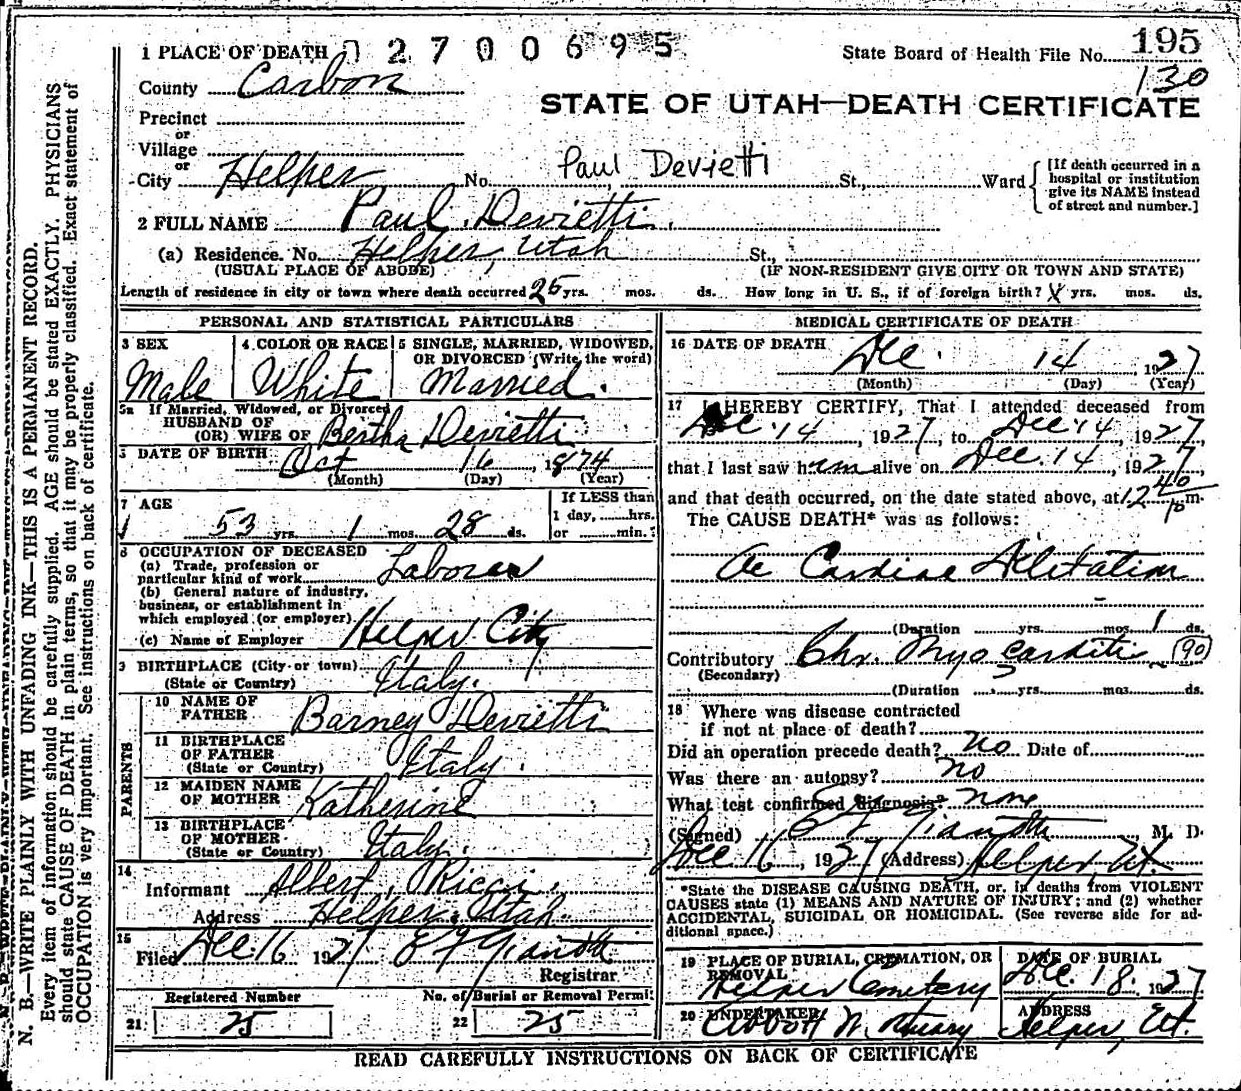 1 PLACE OF DEATH 02700695
State Board of Health File No. 195
130
County Carbon
STATE OF UTAH—DEATH CERTIFICATE
Precinct
or
Village
or
City Helper No. Paul Devietti St., Ward
[If death occurred in a
hospital or institution
give its NAME instead
of street and number.]
2 FULL NAME Paul Devietti
(a) Residence. No. Helper, Utah St.,
(USUAL PLACE OF ABODE) (IF NON-RESIDENT GIVE CITY OR TOWN AND STATE)
Length of residence in city or town where death occurred 25 yrs. mos. ds. How long in U. S., if of foreign birth? yrs. mos. ds.
PERSONAL AND STATISTICAL PARTICULARS
3 SEX
Male
4 COLOR OR RACE
White
5 SINGLE, MARRIED, WIDOWED,
OR DIVORCED (Write the word)
Married.
5a If Married, Widowed, or Divorced
HUSBAND OF
(OR) WIFE OF Bertha Devietti
DATE OF BIRTH Oct 16 1874
(Month) (Day) (Year)
7 AGE
53 yrs. 1 mos. 28 ds.
If LESS than
1 day, hrs.
or min.
8 OCCUPATION OF DECEASED
(a) Trade, profession or
particular kind of work Laborer
(b) General nature of industry,
business, or establishment in
which employed (or employer)
(c) Name of Employer Helper City
9 BIRTHPLACE (City or town)
(State or Country) Italy.
PARENTS
10 NAME OF
FATHER Barney Devietti
11 BIRTHPLACE
OF FATHER
(State or Country) Italy.
12 MAIDEN NAME
OF MOTHER Katherine
13 BIRTHPLACE
OF MOTHER
(State or Country) Italy.
14
Informant Albert Ricci
Address Helper, Utah.
15
Filed Dec 16 1927 E F Gianotti
Registrar
Registered Number
21 25
No. of Burial or Removal Permit
22 25
MEDICAL CERTIFICATE OF DEATH
16 DATE OF DEATH Dec. 14 1927
(Month) (Day) (Year)
17 I HEREBY CERTIFY, That I attended deceased from
Dec. 14, 1927, to Dec. 14, 1927,
that I last saw him alive on Dec. 14, 1927
and that death occurred, on the date stated above, at 12 40 p m.
The CAUSE DEATH* was as follows:
Ac Cardiac Dilitation
(Duration yrs. mos. 1 ds.
Contributory Chr. Myocarditis (90)
(Secondary)
(Duration yrs. mos. ds.
18 Where was disease contracted
if not at place of death?
Did an operation precede death? no Date of
Was there an autopsy? no
What test confirmed diagnosis? none
(Signed) E F Gianotti, M. D.
Dec 16, 1927 (Address) Helper, Ut.
*State the DISEASE CAUSING DEATH, or, in deaths from VIOLENT
CAUSES state (1) MEANS AND NATURE OF INJURY; and (2) whether
ACCIDENTAL, SUICIDAL OR HOMICIDAL. (See reverse side for ad-
ditional space.)
19 PLACE OF BURIAL, CREMATION, OR
REMOVAL
Helper Cemetery
DATE OF BURIAL
Dec. 18. 1927
20 UNDERTAKER
Abbott Mortuary
ADDRESS
Helper, Ut.
READ CAREFULLY INSTRUCTIONS ON BACK OF CERTIFICATE
N. B.—WRITE PLAINLY WITH UNFADING INK—THIS IS A PERMANENT RECORD.
Every item of information should be carefully supplied. AGE should be stated EXACTLY. PHYSICIANS
should state CAUSE OF DEATH in plain terms, so that it may be properly classified. Exact statement of
OCCUPATION is very important. See instructions on back of certificate.